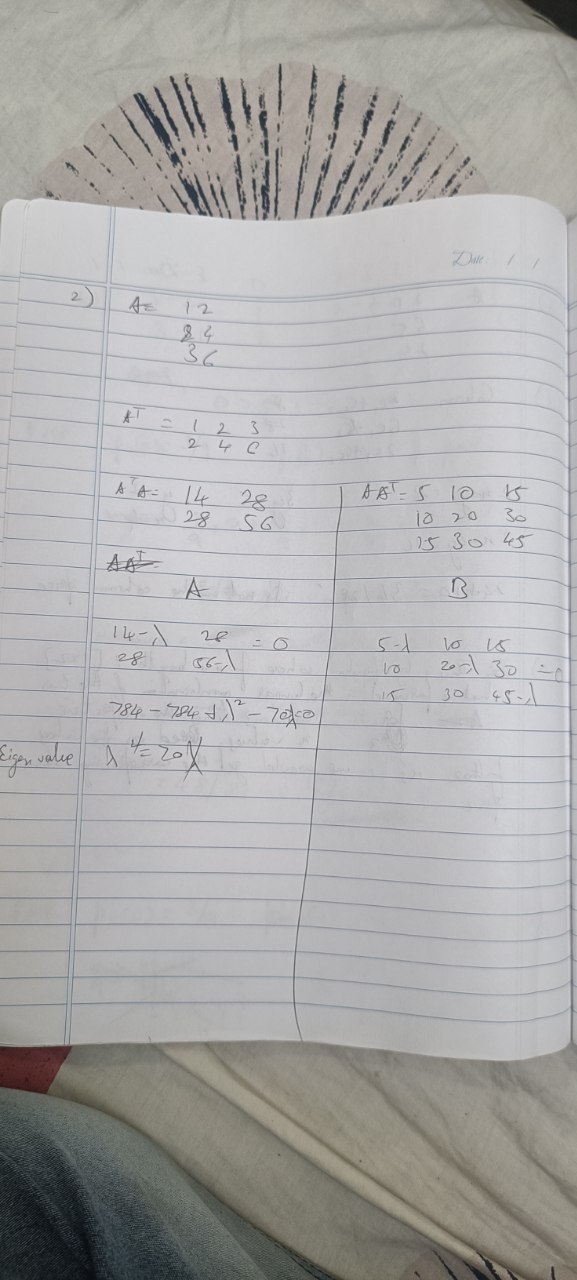 Date: / /
2) A = 1 2
2 4
3 6
Aᵀ = 1 2 3
2 4 6
AᵀA = 14 28
28 56
AAᵀ
A
14-λ 28 = 0
28 56-λ
784 - 784 + λ² - 70λ=0
Eigen value λ = 70
AAᵀ = 5 10 15
10 20 30
15 30 45
B
5-λ 10 15
10 20-λ 30 = 0
15 30 45-λ